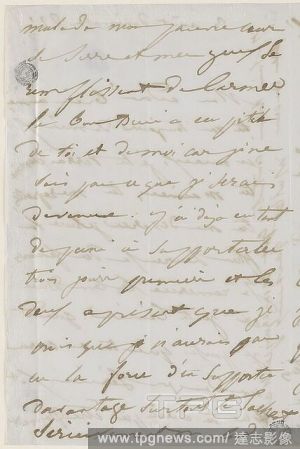 malade mon pauvre cœur
se serre et mes yeux se
remplissent de larmes
le bon Dieu a eu pitié
de toi et de moi car je ne
sais pas ce que je serais
devenue. j'ai déjà eu tant
de peine à supporter les
trois jours premiers et les
deux après que je
crois que je n'aurais pas
eu la force d'en supporter
davantage surtout
TPG
www.tpgnews.com / 達志影像